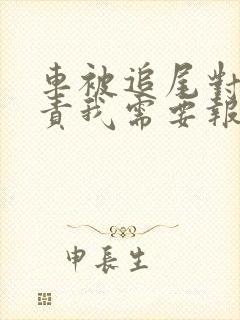 車被追尾對
責我需要報
申長生